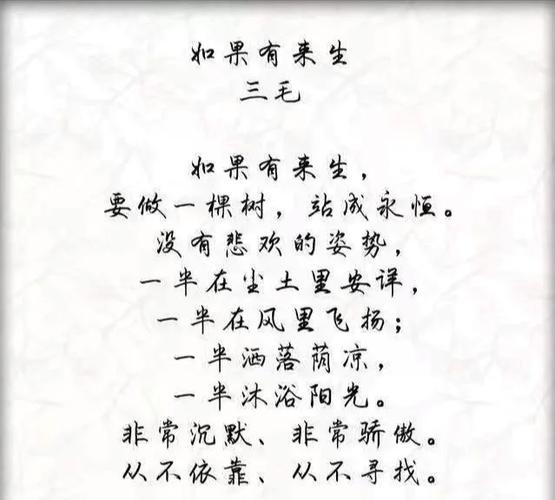 如果有来生
三毛
如果有来生，
要做一棵树，站成永恒。
没有悲欢的姿势，
一半在尘土里安详，
一半在风里飞扬；
一半洒落荫凉，
一半沐浴阳光。
非常沉默、非常骄傲。
从不依靠、从不寻找。